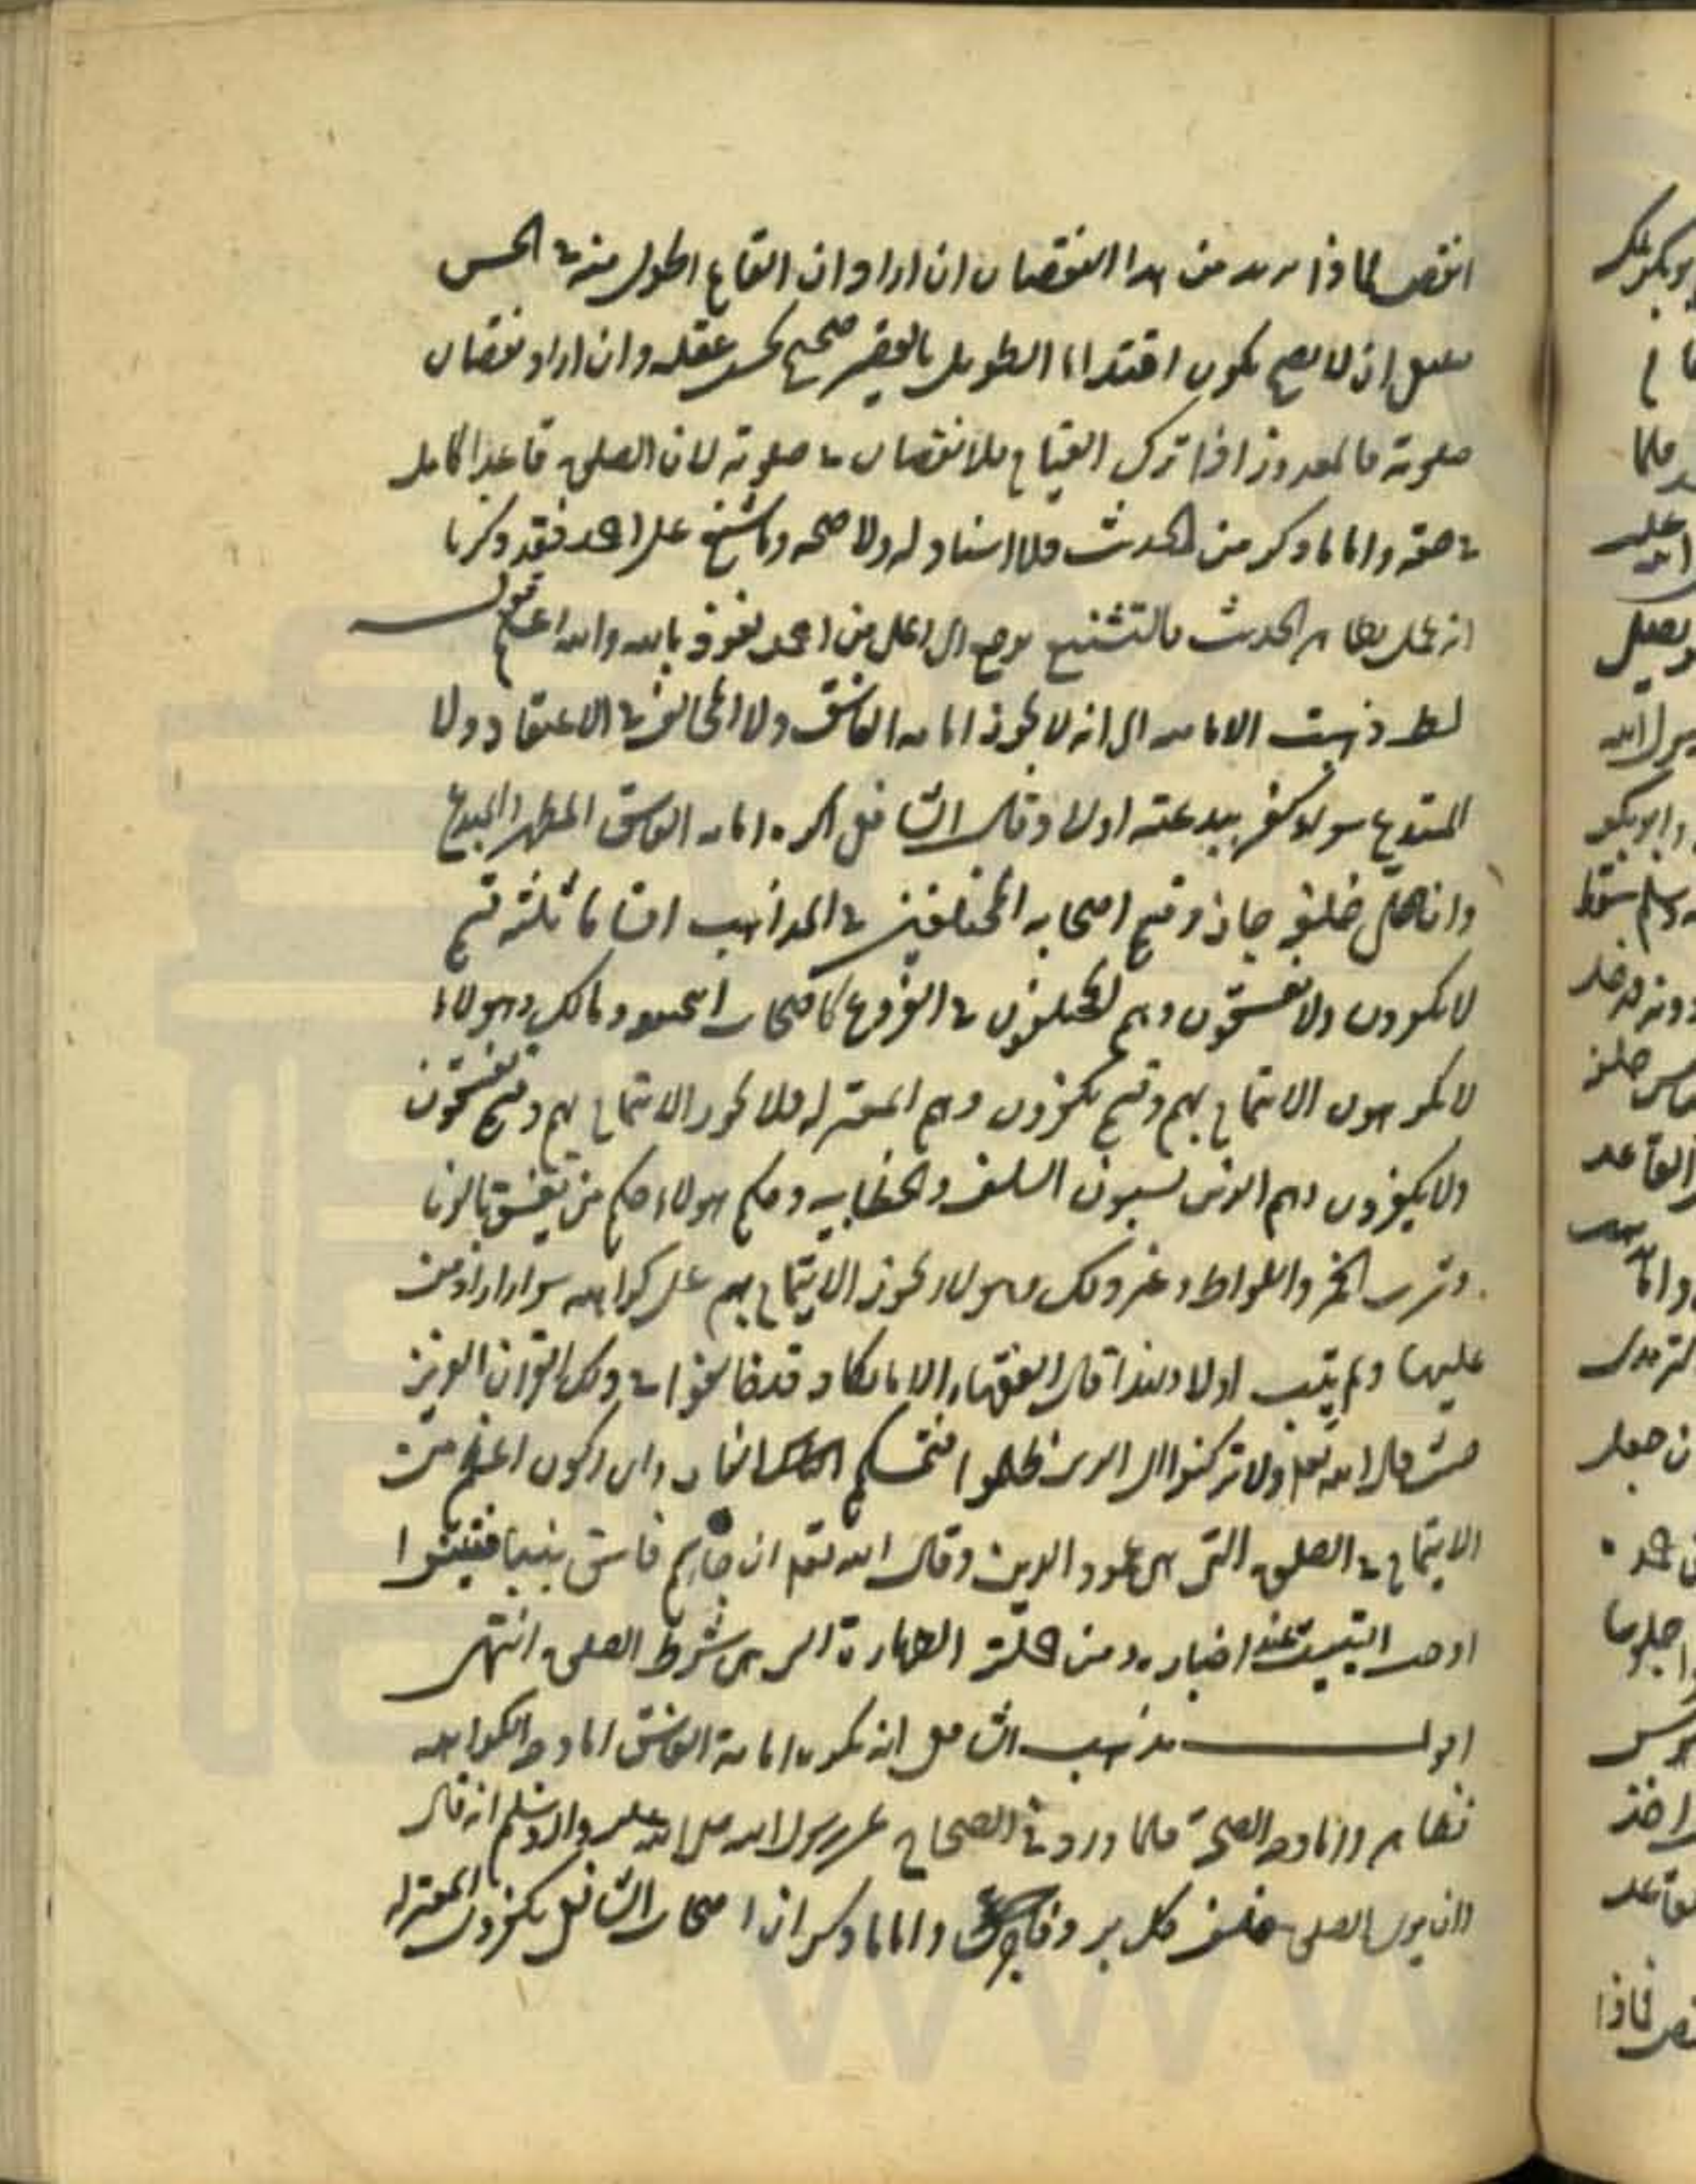 انقص فماذا يريد من هذا النقصان ان اراد ان القائم اطول منه في الحس
فقيل ان لا يصح يكون اقتداء الطويل بالقصير صحيح بحسب عقله وان اراد نقصان
صلوته فالمعذور اذا ترك القيام فلا نقصان في صلوته لان الصلوة قاعدا كامل
في حقه واما ما ذكر من الحديث فلا اسناد له ولا صحة وما شنع على احمد فقد ذكرنا
انه عمل بظاهر الحديث فالتشنيع يرجع الى اعلى من احمد نعوذ بالله والله اعلم قال
المط ذهبت الامامية الى انه لا يجوز امامة الفاسق ولا المخالف في الاعتقاد ولا
المبتدع سواء كفر ببدعته اولا وقال الشافعي اكره امامة الفاسق المظهر البدع
وان صلى خلفه جاز وقسم اصحابه المختلفين في المذاهب اقساما ثلثة قسم
لا يكفرون ولا يفسقون وهم المختلفون في الفروع كاصحاب ابي حنيفه ومالك وهولاء
لا يكرهون الايتمام بهم وقسم يكفرون وهم المعتزله فلا يجوز الايتمام بهم وقسم يفسقون
ولا يكفرون وهم الذين يسبون السلف والخطابيه وحكم هولاء حكم من يفسق بالزنا
وشرب الخمر واللواط وغير ذلك وهولاء يجوز الايتمام بهم على كراهه سواء اراد من
عليها ولم يتب اولا ولهذا قال الفقهاء الا مالكا وقد خالفوا في ذلك القران العزيز
حيث قال الله تعالى ولا تركنوا الى الذين ظلموا فتمسكم النار واي ركون اعظم من
الايتمام في الصلوة التي هي عمود الدين وقال الله تعالى ان جاءكم فاسق بنبأ فتبينوا
اوجب التثبت عند اخباره ومن جملته الطهارة التي هي شرط الصلوة انتهى
اقول مذهب الشافعي انه يكره امامة الفاسق اما وجه الكراهه
فظاهر واما وجه الصحة فلما ورد في الصحاح عن رسول الله صلى الله عليه واله وسلم انه قال
الصلوة خلف كل بر وفاجر واما ما ذكر ان اصحاب الشافعي يكفرون المعتزله